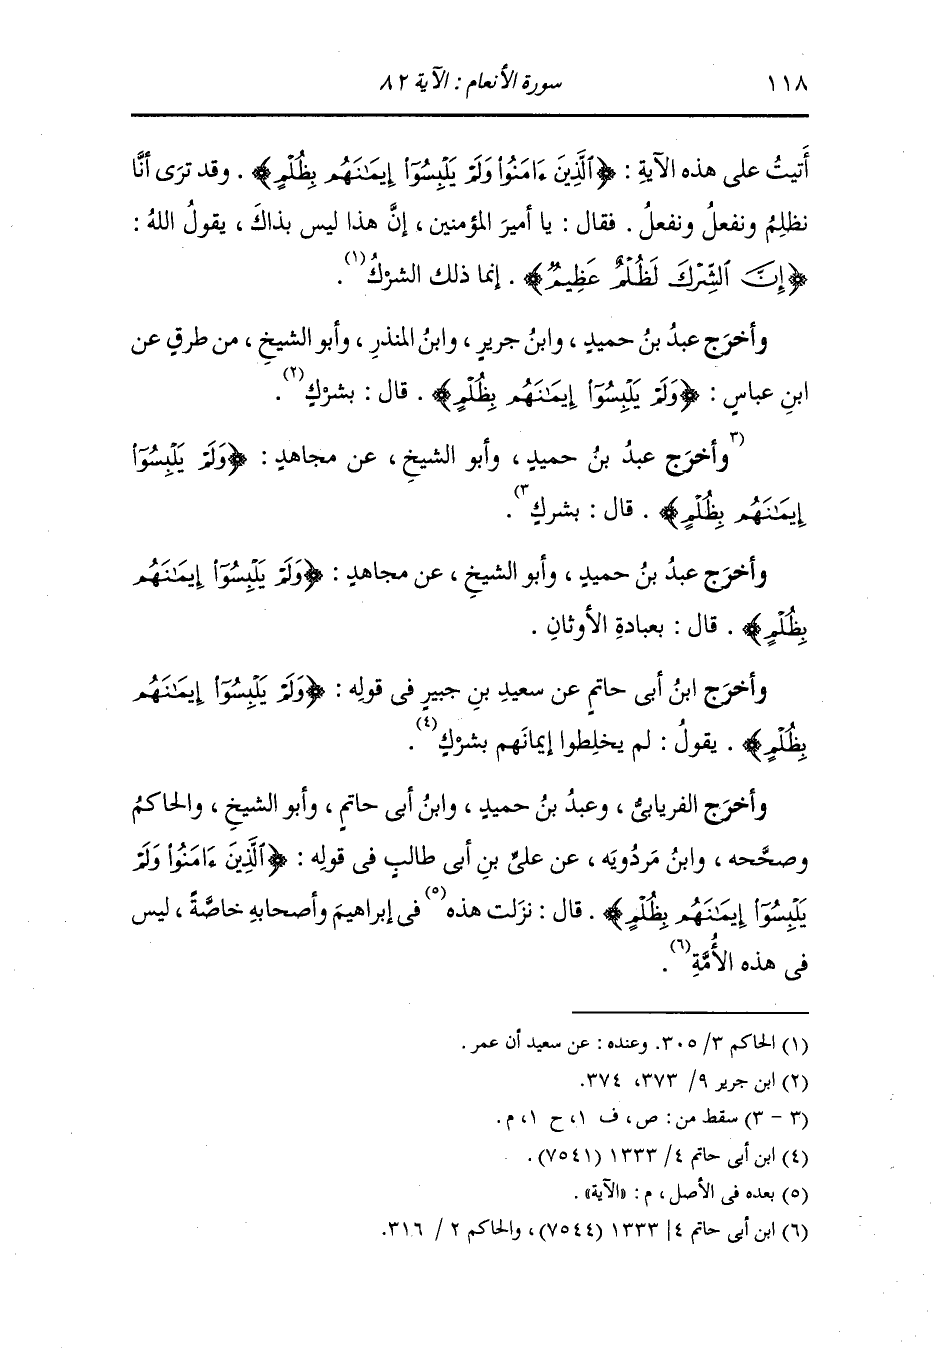 ١١٨ سورة الأنعام : الآية ٨٢
أَتيتُ على هذه الآيةِ : ﴿ٱلَّذِينَ ءَامَنُوا۟ وَلَمْ يَلْبِسُوٓا۟ إِيمَـٰنَهُم بِظُلْمٍ﴾ . وقد ترَى أنَّا
نظلِمُ ونفعلُ ونفعلُ . فقال : يا أميرَ المؤمنين ، إنَّ هذا ليس بذاكَ ، يقولُ اللهُ :
﴿إِنَّ ٱلشِّرْكَ لَظُلْمٌ عَظِيمٌ﴾ . إنما ذلك الشرْكُ(١) .
وأخرَج عبدُ بنُ حميدٍ ، وابنُ جريرٍ ، وابنُ المنذرِ ، وأبو الشيخِ ، من طرقٍ عن
ابنِ عباسٍ : ﴿وَلَمْ يَلْبِسُوٓا۟ إِيمَـٰنَهُم بِظُلْمٍ﴾ . قال : بشرْكٍ(٢) .
(٣وأخرَج عبدُ بنُ حميدٍ ، وأبو الشيخِ ، عن مجاهدٍ : ﴿وَلَمْ يَلْبِسُوٓا۟
إِيمَـٰنَهُم بِظُلْمٍ﴾ . قال : بشركٍ٣) .
وأخرَج عبدُ بنُ حميدٍ ، وأبو الشيخِ ، عن مجاهدٍ : ﴿وَلَمْ يَلْبِسُوٓا۟ إِيمَـٰنَهُم
بِظُلْمٍ﴾ . قال : بعبادةِ الأوثانِ .
وأخرَج ابنُ أبى حاتمٍ عن سعيدِ بنِ جبيرٍ فى قولِه : ﴿وَلَمْ يَلْبِسُوٓا۟ إِيمَـٰنَهُم
بِظُلْمٍ﴾ . يقولُ : لم يخلِطوا إيمانَهم بشرْكٍ(٤) .
وأخرَج الفريابىُّ ، وعبدُ بنُ حميدٍ ، وابنُ أبى حاتمٍ ، وأبو الشيخِ ، والحاكمُ
وصحَّحه ، وابنُ مَردُويَه ، عن علىِّ بنِ أبى طالبٍ فى قولِه : ﴿ٱلَّذِينَ ءَامَنُوا۟ وَلَمْ
يَلْبِسُوٓا۟ إِيمَـٰنَهُم بِظُلْمٍ﴾ . قال : نزَلت هذه(٥) فى إبراهيمَ وأصحابِه خاصَّةً ، ليس
فى هذه الأُمَّةِ(٦) .
(١) الحاكم ٣/ ٣٠٥. وعنده : عن سعيد أن عمر .
(٢) ابن جرير ٩/ ٣٧٣، ٣٧٤.
(٣ - ٣) سقط من : ص ، ف ١، ح ١، م .
(٤) ابن أبى حاتم ٤/ ١٣٣٣ (٧٥٤١) .
(٥) بعده فى الأصل ، م : «الآية» .
(٦) ابن أبى حاتم ٤/ ١٣٣٣ (٧٥٤٤) ، والحاكم ٢ / ٣١٦.